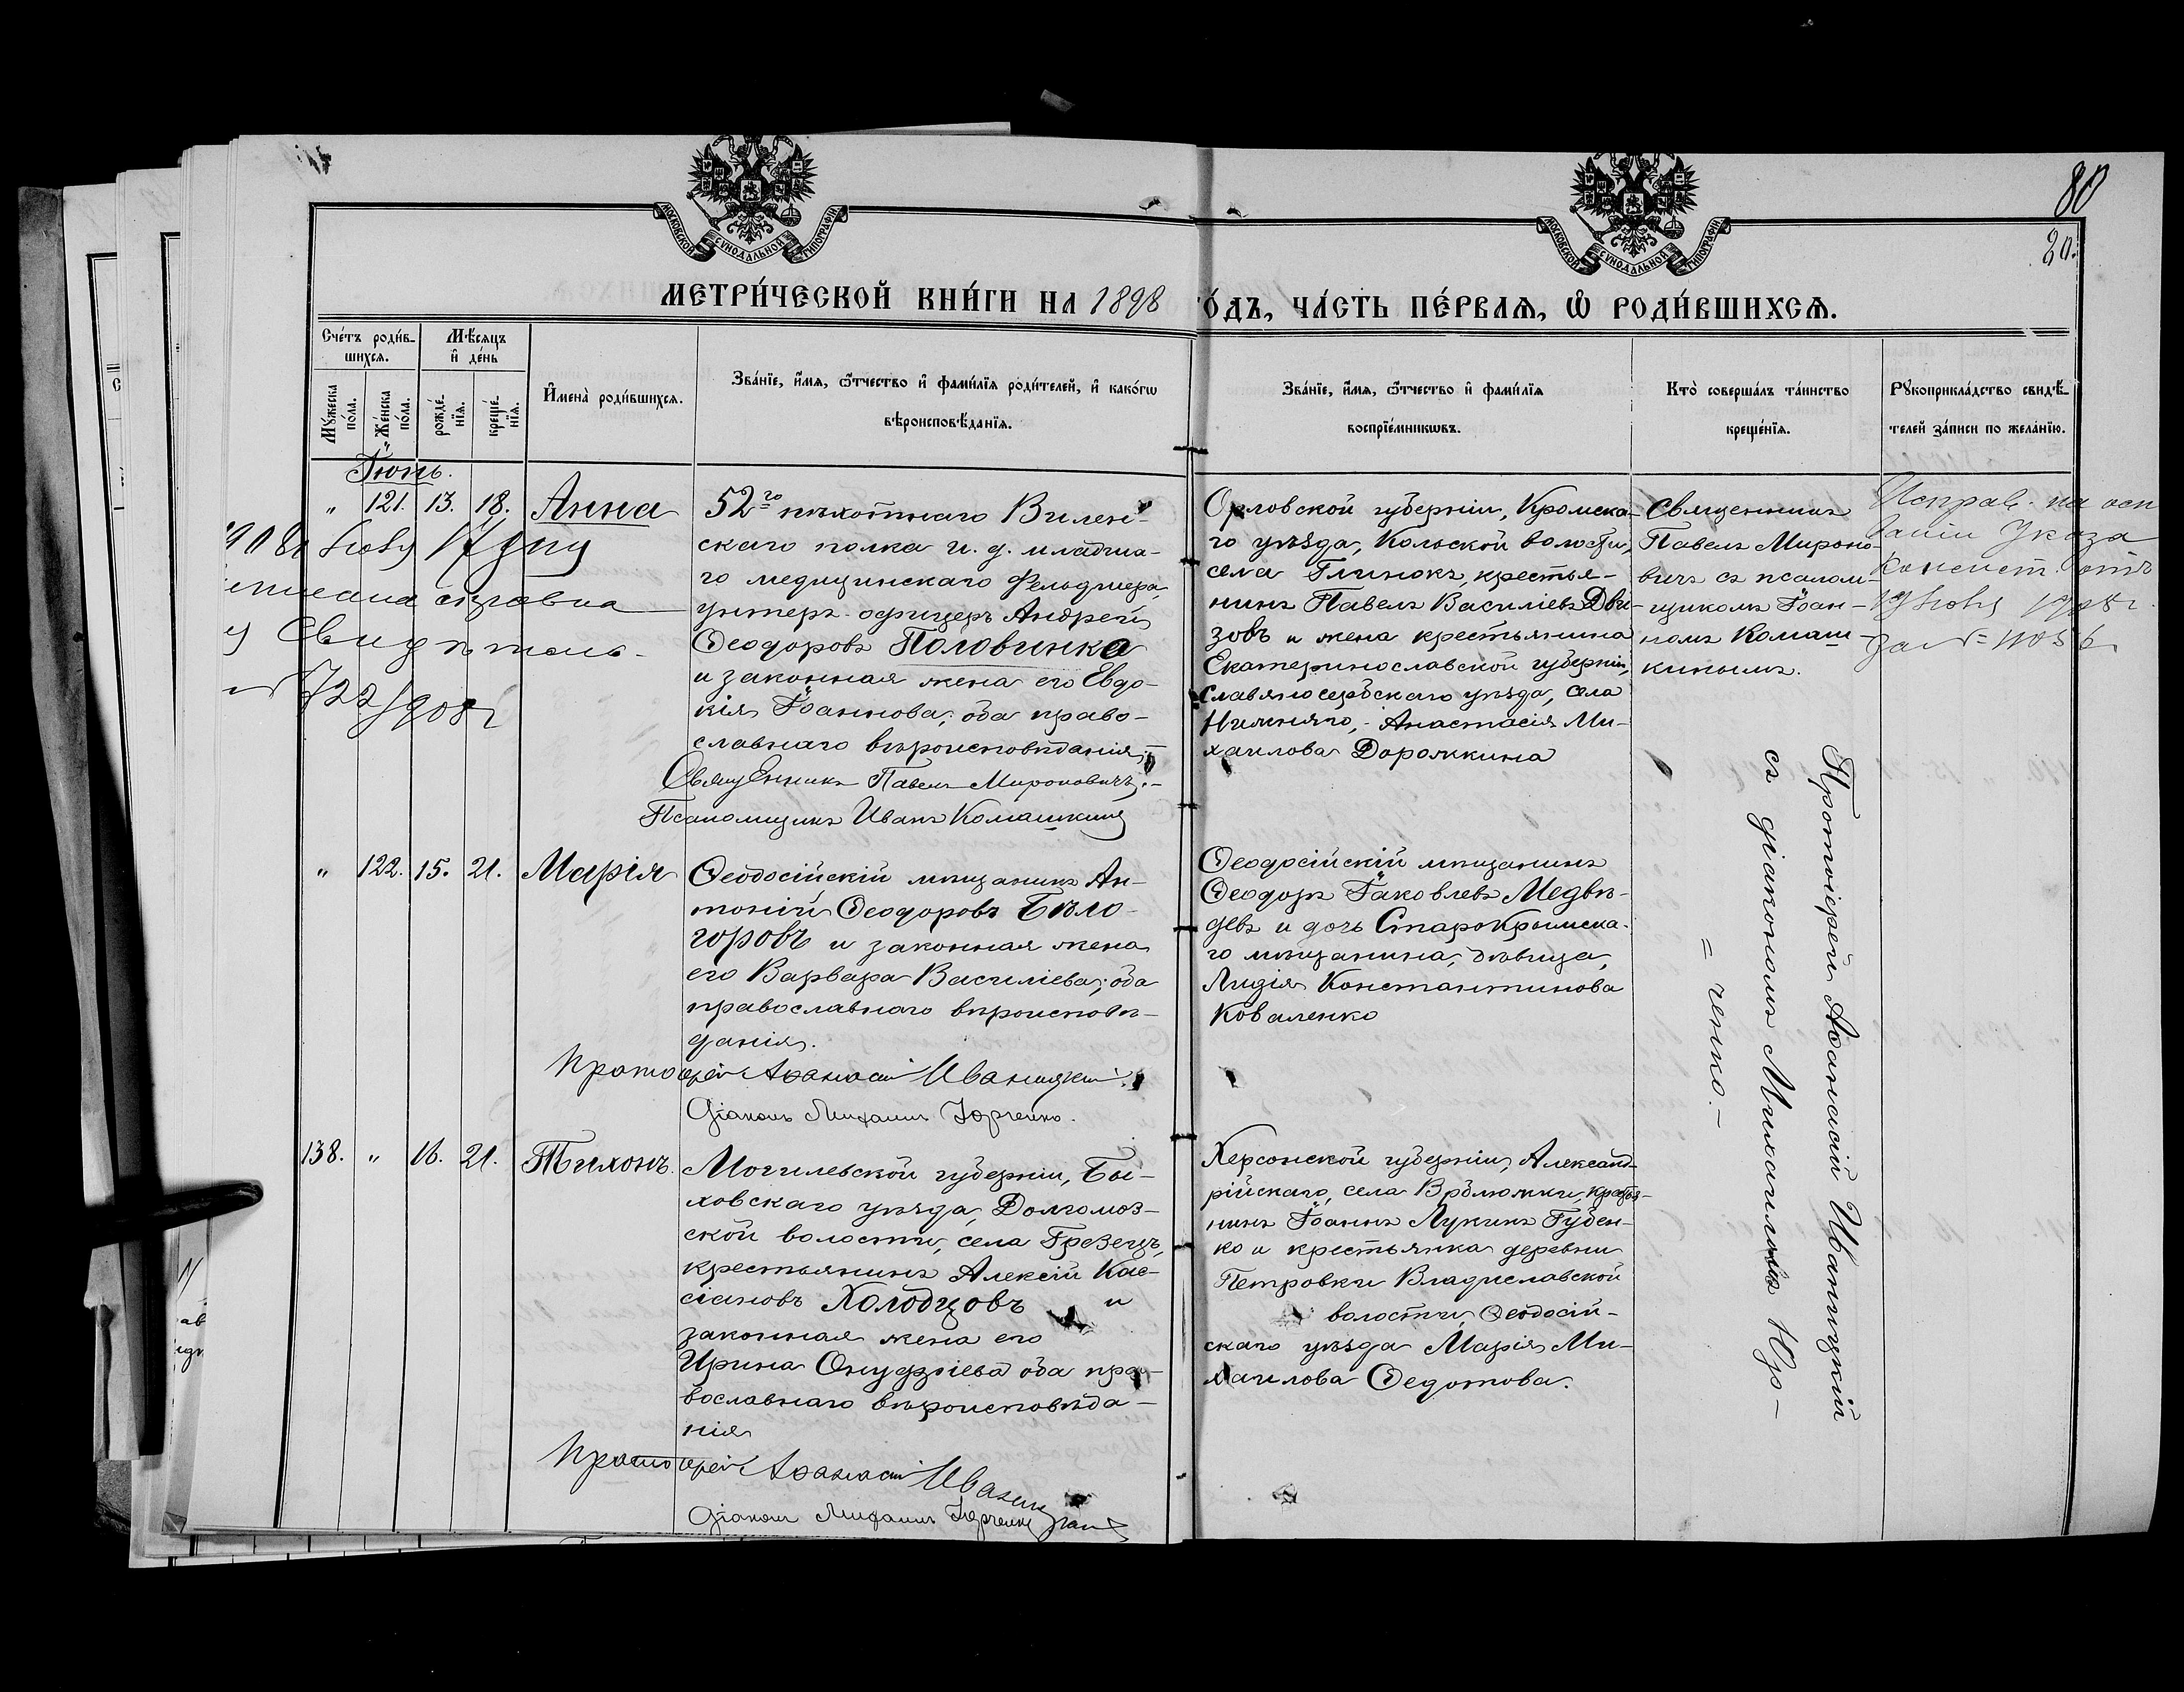 МОСКОВСКОЙ СѴНОДАЛЬНОЙ ТИПОГРАФІИ
МОСКОВСКОЙ СѴНОДАЛЬНОЙ ТИПОГРАФІИ
80
20.
МЕТРИ́ЧЕСКОЙ КНИ́ГИ НА 1898 ГО́ДЪ, ЧА́СТЬ ПЕ́РВАѦ, Ѡ҆ РОДИ́ВШИХСѦ.
Сче́тъ роди́в-
шихсѧ.
Мѣ́сѧцъ
и҆ де́нь
Мꙋ́жеска по́ла.
Же́нска по́ла.
рожде́-
нїѧ.
креще́-
нїѧ.
И҆мена̀ роди́вшихсѧ.
Зва́нїе, и҆́мѧ, ѻ҆́тчество и҆ фами́лїѧ роди́телей, и҆ како́гѡ
вѣроисповѣ́данїѧ.
Зва́нїе, и҆́мѧ, ѻ҆́тчество и҆ фами́лїѧ
воспрїе́мникѡвъ.
Кто̀ соверша́лъ та́инство
креще́нїѧ.
Рꙋкоприкла́дство свидѣ́-
телей за́писи по жела́нїю.
Іюнь.
" 121. 13. 18. Анна
52го пѣхотнаго Вилен-
скаго полка и. д. младша-
го медицинскаго фельдшера,
унтеръ-офицеръ Андрей
Ѳеодоровъ Половинка
и законная жена его Евдо-
кія Іоаннова; оба право-
славнаго вѣроисповѣданія;
Священникъ Павелъ Мироновичъ.
Псаломщикъ Иванъ Комашкинъ
Орловской губерніи, Кромска-
го уѣзда, Кольской волости,
села Глинокъ, крестья-
нинъ Павелъ Василіевъ Дви-
зовъ и жена крестьянина
Екатеринославской губерніи,
Славяносербскаго уѣзда, села
Нижняго, - Анастасія Ми-
хаилова Дорожкина
Священникъ
Павелъ Мироно-
вичъ съ псалом-
щикомъ Іоан-
номъ Комаш-
кинымъ.
Исправ. на осн
ваніи Указа
Консист. отъ
справка
Свидѣтель-
722/908 г
" 122. 15. 21. Марія
Ѳеодосійскій мѣщанинъ Ан-
тоній Ѳеодоровъ Бѣло-
горовъ и законная жена
его Варвара Василіева; оба
православнаго вѣроисповѣ-
данія.
Протоіерей Аѳанасій Иваницкій
Діаконъ Михаилъ Юрченко.
Ѳеодосійскій мѣщанинъ
Ѳеодоръ Іаковлевъ Медвѣ-
девъ и дочь СтароКрымска-
го мѣщанина, дѣвица,
Лидія Константинова
Коваленко
Протоіерей Аѳанасій Иваницкій
съ діакономъ Михаиломъ Юр-
=ченко.-
138. " 16. 21. Тихонъ.
Могилевской губерніи, Бы-
ховскаго уѣзда, Долгомоз-
ской волости, села Грезецъ,
крестьянинъ Алексій Кас-
сіановъ Холодцовъ и
законная жена его
Ирина Онуфріева оба пра-
вославнаго вѣроисповѣда-
нія
Протоіерей Аѳанасій Иваницкій
Діаконъ Михаилъ Юрченко
Херсонской губерніи, Александ-
рійскаго, села Врблюжки, крестья-
нинъ Іоаннъ Лукинъ Губен-
ко и крестьянка деревни
Петровки Владиславской
волости, Ѳеодосій-
скаго уѣзда Марія Ми-
хаилова Ѳедотова.